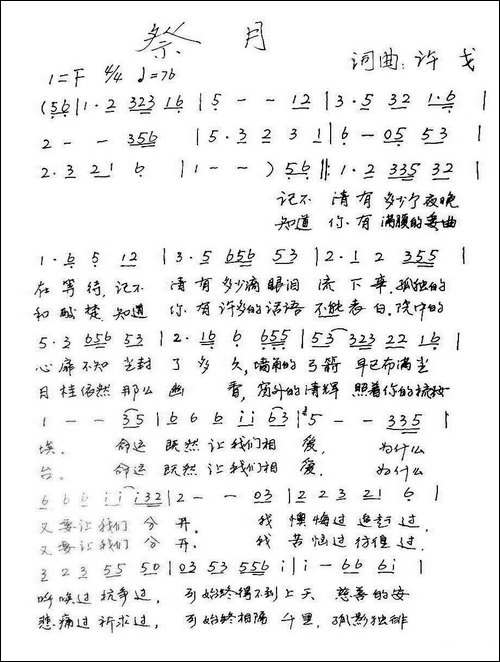 祭 月
1=F 4/4 ♩=76 词曲:许戈
(56|1·2 323 16|5 - - 12|3·5 32 1·6|
2 - - 356|5·3 2 3 1|6 - 05 53|
2·3 21 6|1 - - )56|:1·2 335 32|
记不 清有多少个夜晚
知道 你有满腹的委曲
1·6 5 12|3·5 656 53|2·1 2 355|
在等待,记不 清有多少滴眼泪 流下来,孤独的
和 楚,知道 你有许多的话语 不能表白,院中的
5·3 656 53|2·16 6 655|53 323 22 16|
心扉不知尘封了多久,墙角的弓箭 早已布满尘
月桂依然那么幽香,窗外的清辉 照着你的梳妆
1 - - 35|6 6 6 ii 63|5 - - 335|
埃。 命运 既然让我们相爱, 为什么
台。 命运 既然让我们相爱, 为什么
6 6 6 i i i32|2 - - 03|2 2 3 21 6|
又要让我们分开。 我懊悔过追封过,
又要让我们分开。 我苦恼过彷徨过,
3 23 55 50|03 53 556 i|i - 66 6i|
呼唤过抗争过, 可始终得不到上天 慈善的安
悲痛过祈求过, 可始终相隔千里, 孤影独徘